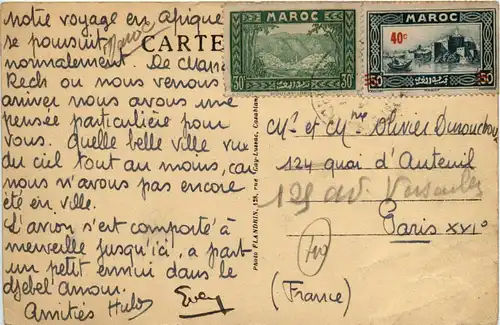 notre voyage en Afrique
se poursuit
normalement. De
Kech ou nous venons
arriver nous avons une
pensée particulière pour
vous. Quelle belle ville vue
du ciel tout au moins, car
nous n'avons pas encore
été en ville.
L'avion s'est comporté à
merveille jusqu'ici, a part
un petit ennui dans le
djebel Amour.
Amitiés
Maroc
CARTE
MAROC
30c 30c
MAROC
40c
50 50
PHOTO FLANDRIN, Casablanca
Mr et Mme Olivier
124 quai d'Auteuil
125 av. Versailles
Paris XXIo
(France)